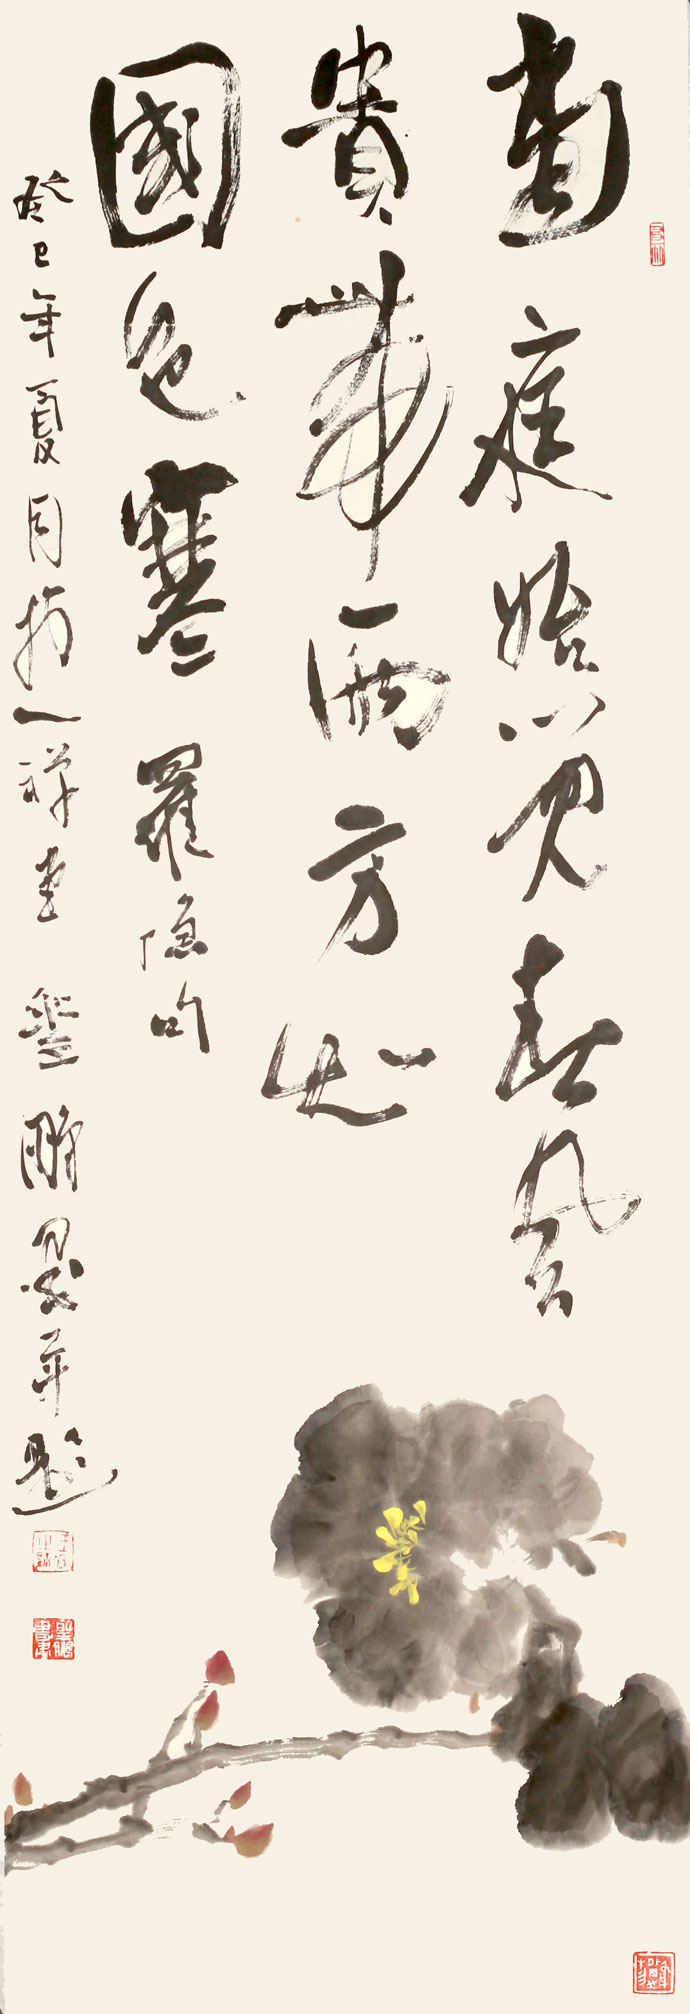 當庭始覺春風
貴帶雨方知
國色寒 羅隱句
癸巳年夏月於一堂 聖鵬并題